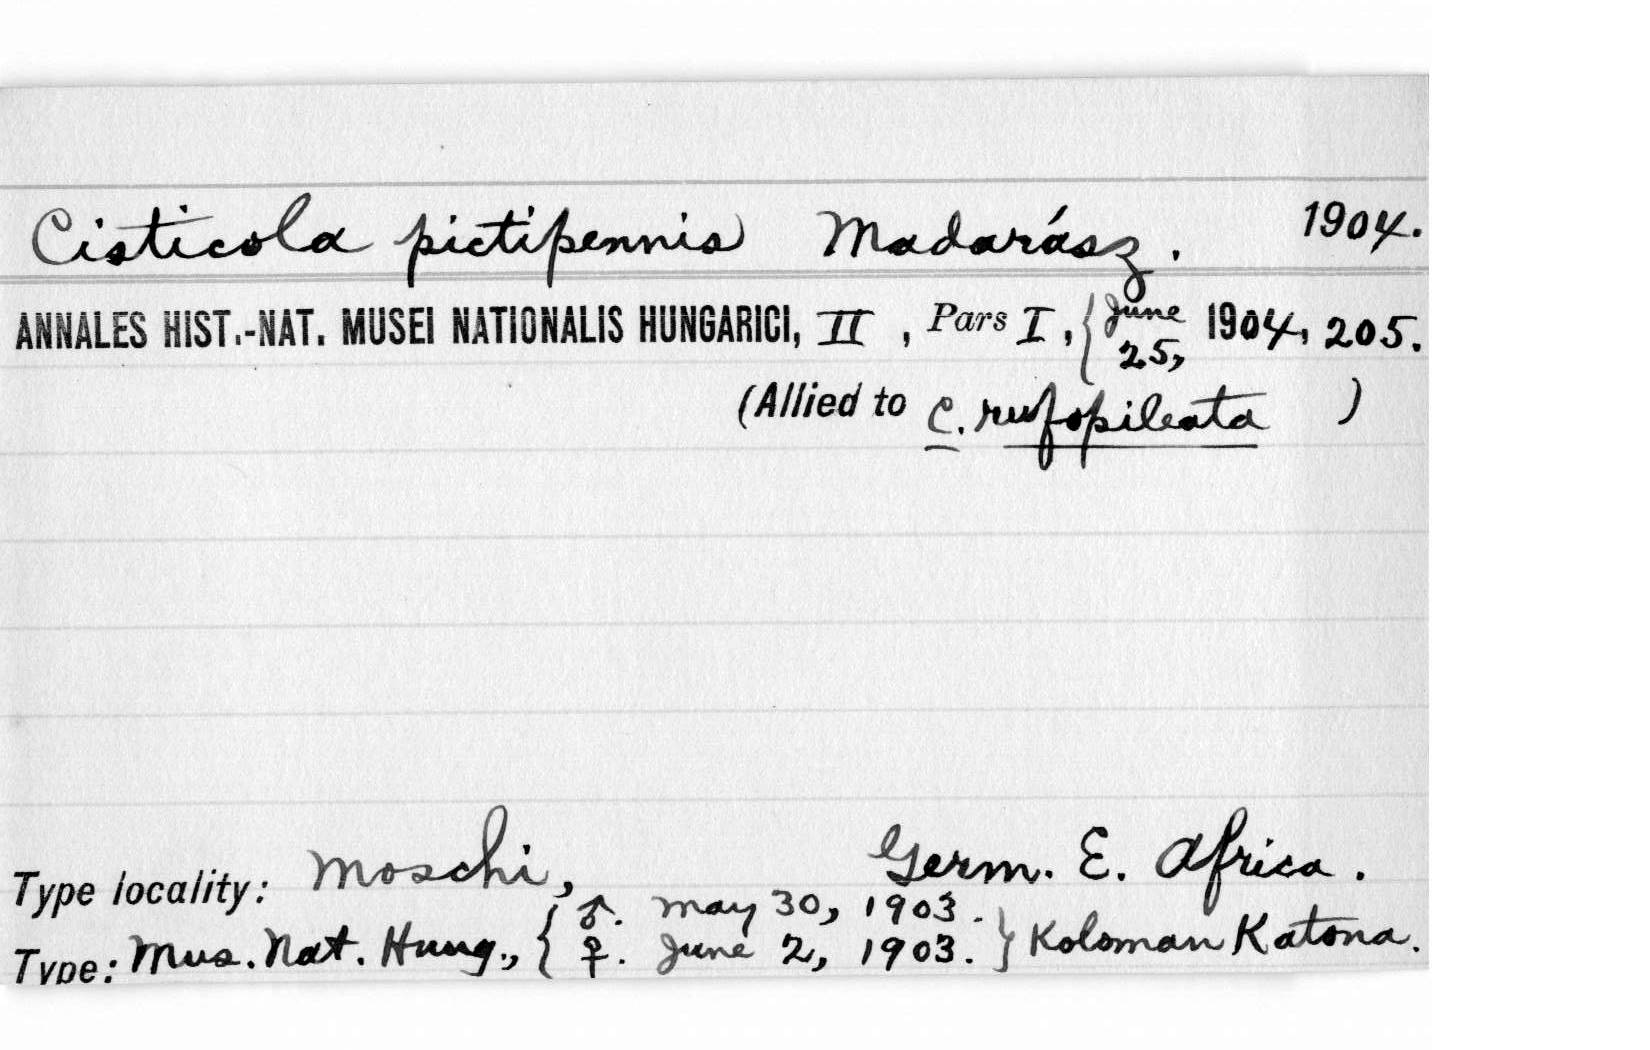 Cisticola pictipennis Madarász. 1904.
ANNALES HIST.-NAT. MUSEI NATIONALIS HUNGARICI, II, Pars I, { June 25, 1904, 205.
(Allied to C. rufopileata )
Type locality: Moschi, Germ. E. Africa.
Type: Mus. Nat. Hung., { ♂. May 30, 1903. ♀. June 2, 1903. } Koloman Katona.